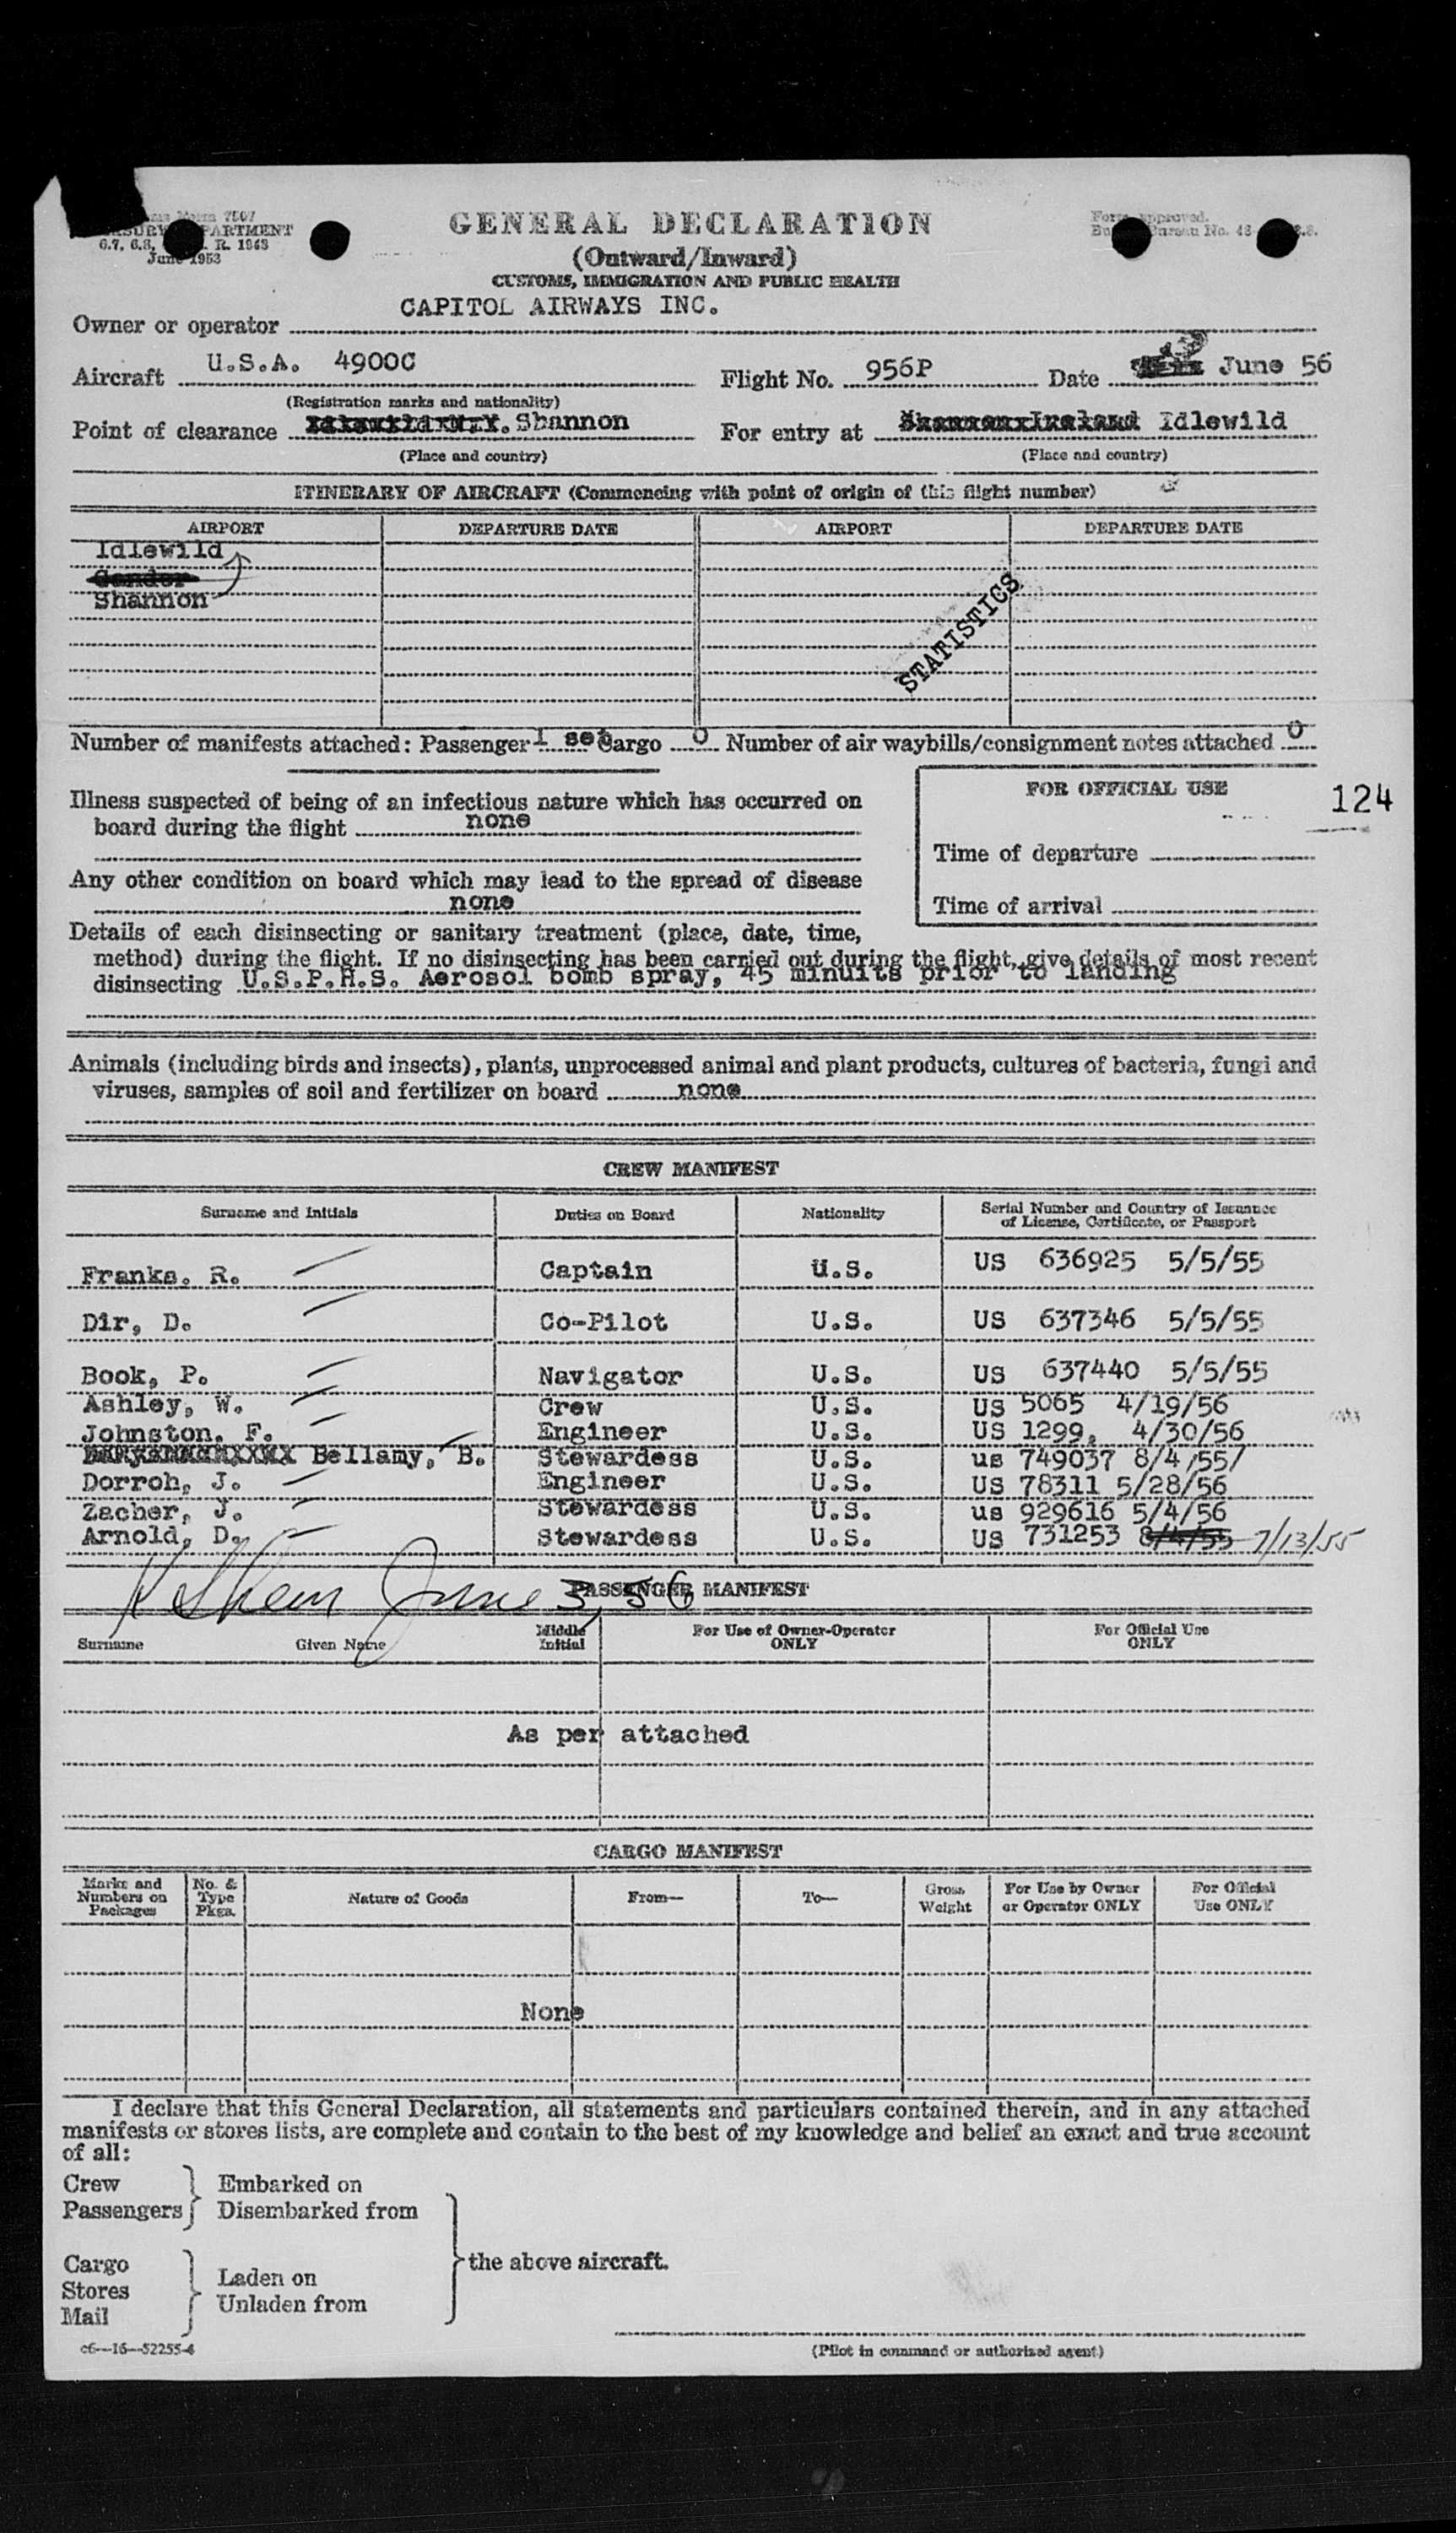 Form 7507
TREASURY DEPARTMENT
6.7, 6.8, R. 1943
June 1953
Form approved.
Bureau No. 48-
GENERAL DECLARATION
(Outward/Inward)
CUSTOMS, IMMIGRATION AND PUBLIC HEALTH
Owner or operator CAPITOL AIRWAYS INC.
Aircraft U.S.A. 4900C Flight No. 956P Date June 56
(Registration marks and nationality)
Point of clearance Idlewild N.Y. Shannon For entry at Shannon Ireland Idlewild
(Place and country) (Place and country)
ITINERARY OF AIRCRAFT (Commencing with point of origin of this flight number)
AIRPORT DEPARTURE DATE AIRPORT DEPARTURE DATE
Idlewild
Gander
Shannon
STATISTICS
Number of manifests attached: Passenger 1 set Cargo 0 Number of air waybills/consignment notes attached 0
Illness suspected of being of an infectious nature which has occurred on
board during the flight none
FOR OFFICIAL USE
124
Time of departure
Any other condition on board which may lead to the spread of disease
none
Time of arrival
Details of each disinsecting or sanitary treatment (place, date, time,
method) during the flight. If no disinsecting has been carried out during the flight, give details of most recent
disinsecting U.S.P.H.S. Aerosol bomb spray, 45 minuits prior to landing
Animals (including birds and insects), plants, unprocessed animal and plant products, cultures of bacteria, fungi and
viruses, samples of soil and fertilizer on board none
CREW MANIFEST
Surname and Initials Duties on Board Nationality Serial Number and Country of Issuance
of License, Certificate, or Passport
Franks. R. Captain U.S. US 636925 5/5/55
Dir, D. Co-Pilot U.S. US 637346 5/5/55
Book, P. Navigator U.S. US 637440 5/5/55
Ashley, W. Crew U.S. US 5065 4/19/56
Johnston. F. Engineer U.S. US 1299, 4/30/56
Bellamy, B. Stewardess U.S. us 749037 8/4/55/
Dorroh, J. Engineer U.S. US 78311 5/28/56
Zacher, J. Stewardess U.S. us 929616 5/4/56
Arnold, D. Stewardess U.S. US 731253 8/4/55 7/13/55
June 3, 56
PASSENGER MANIFEST
Surname Given Name Middle
Initial For Use of Owner-Operator
ONLY For Official Use
ONLY
As per attached
CARGO MANIFEST
Marks and
Numbers on
Packages No. &
Type
Pkgs. Nature of Goods From— To— Gross
Weight For Use by Owner
or Operator ONLY For Official
Use ONLY
None
I declare that this General Declaration, all statements and particulars contained therein, and in any attached
manifests or stores lists, are complete and contain to the best of my knowledge and belief an exact and true account
of all:
Crew Embarked on
Passengers Disembarked from
the above aircraft.
Cargo
Stores Laden on
Mail Unladen from
c6—16—52255-4
(Pilot in command or authorized agent)